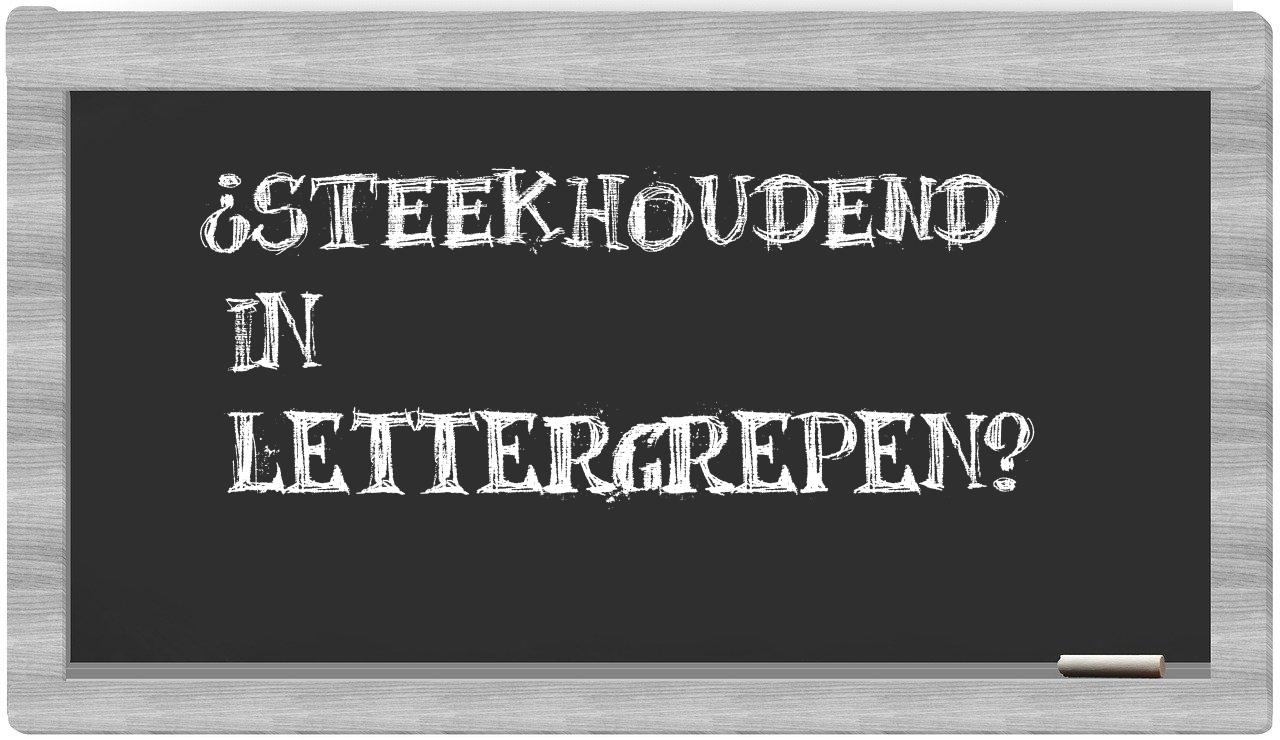 ¿STEEKHOUDEND
IN
LETTERGREPEN?